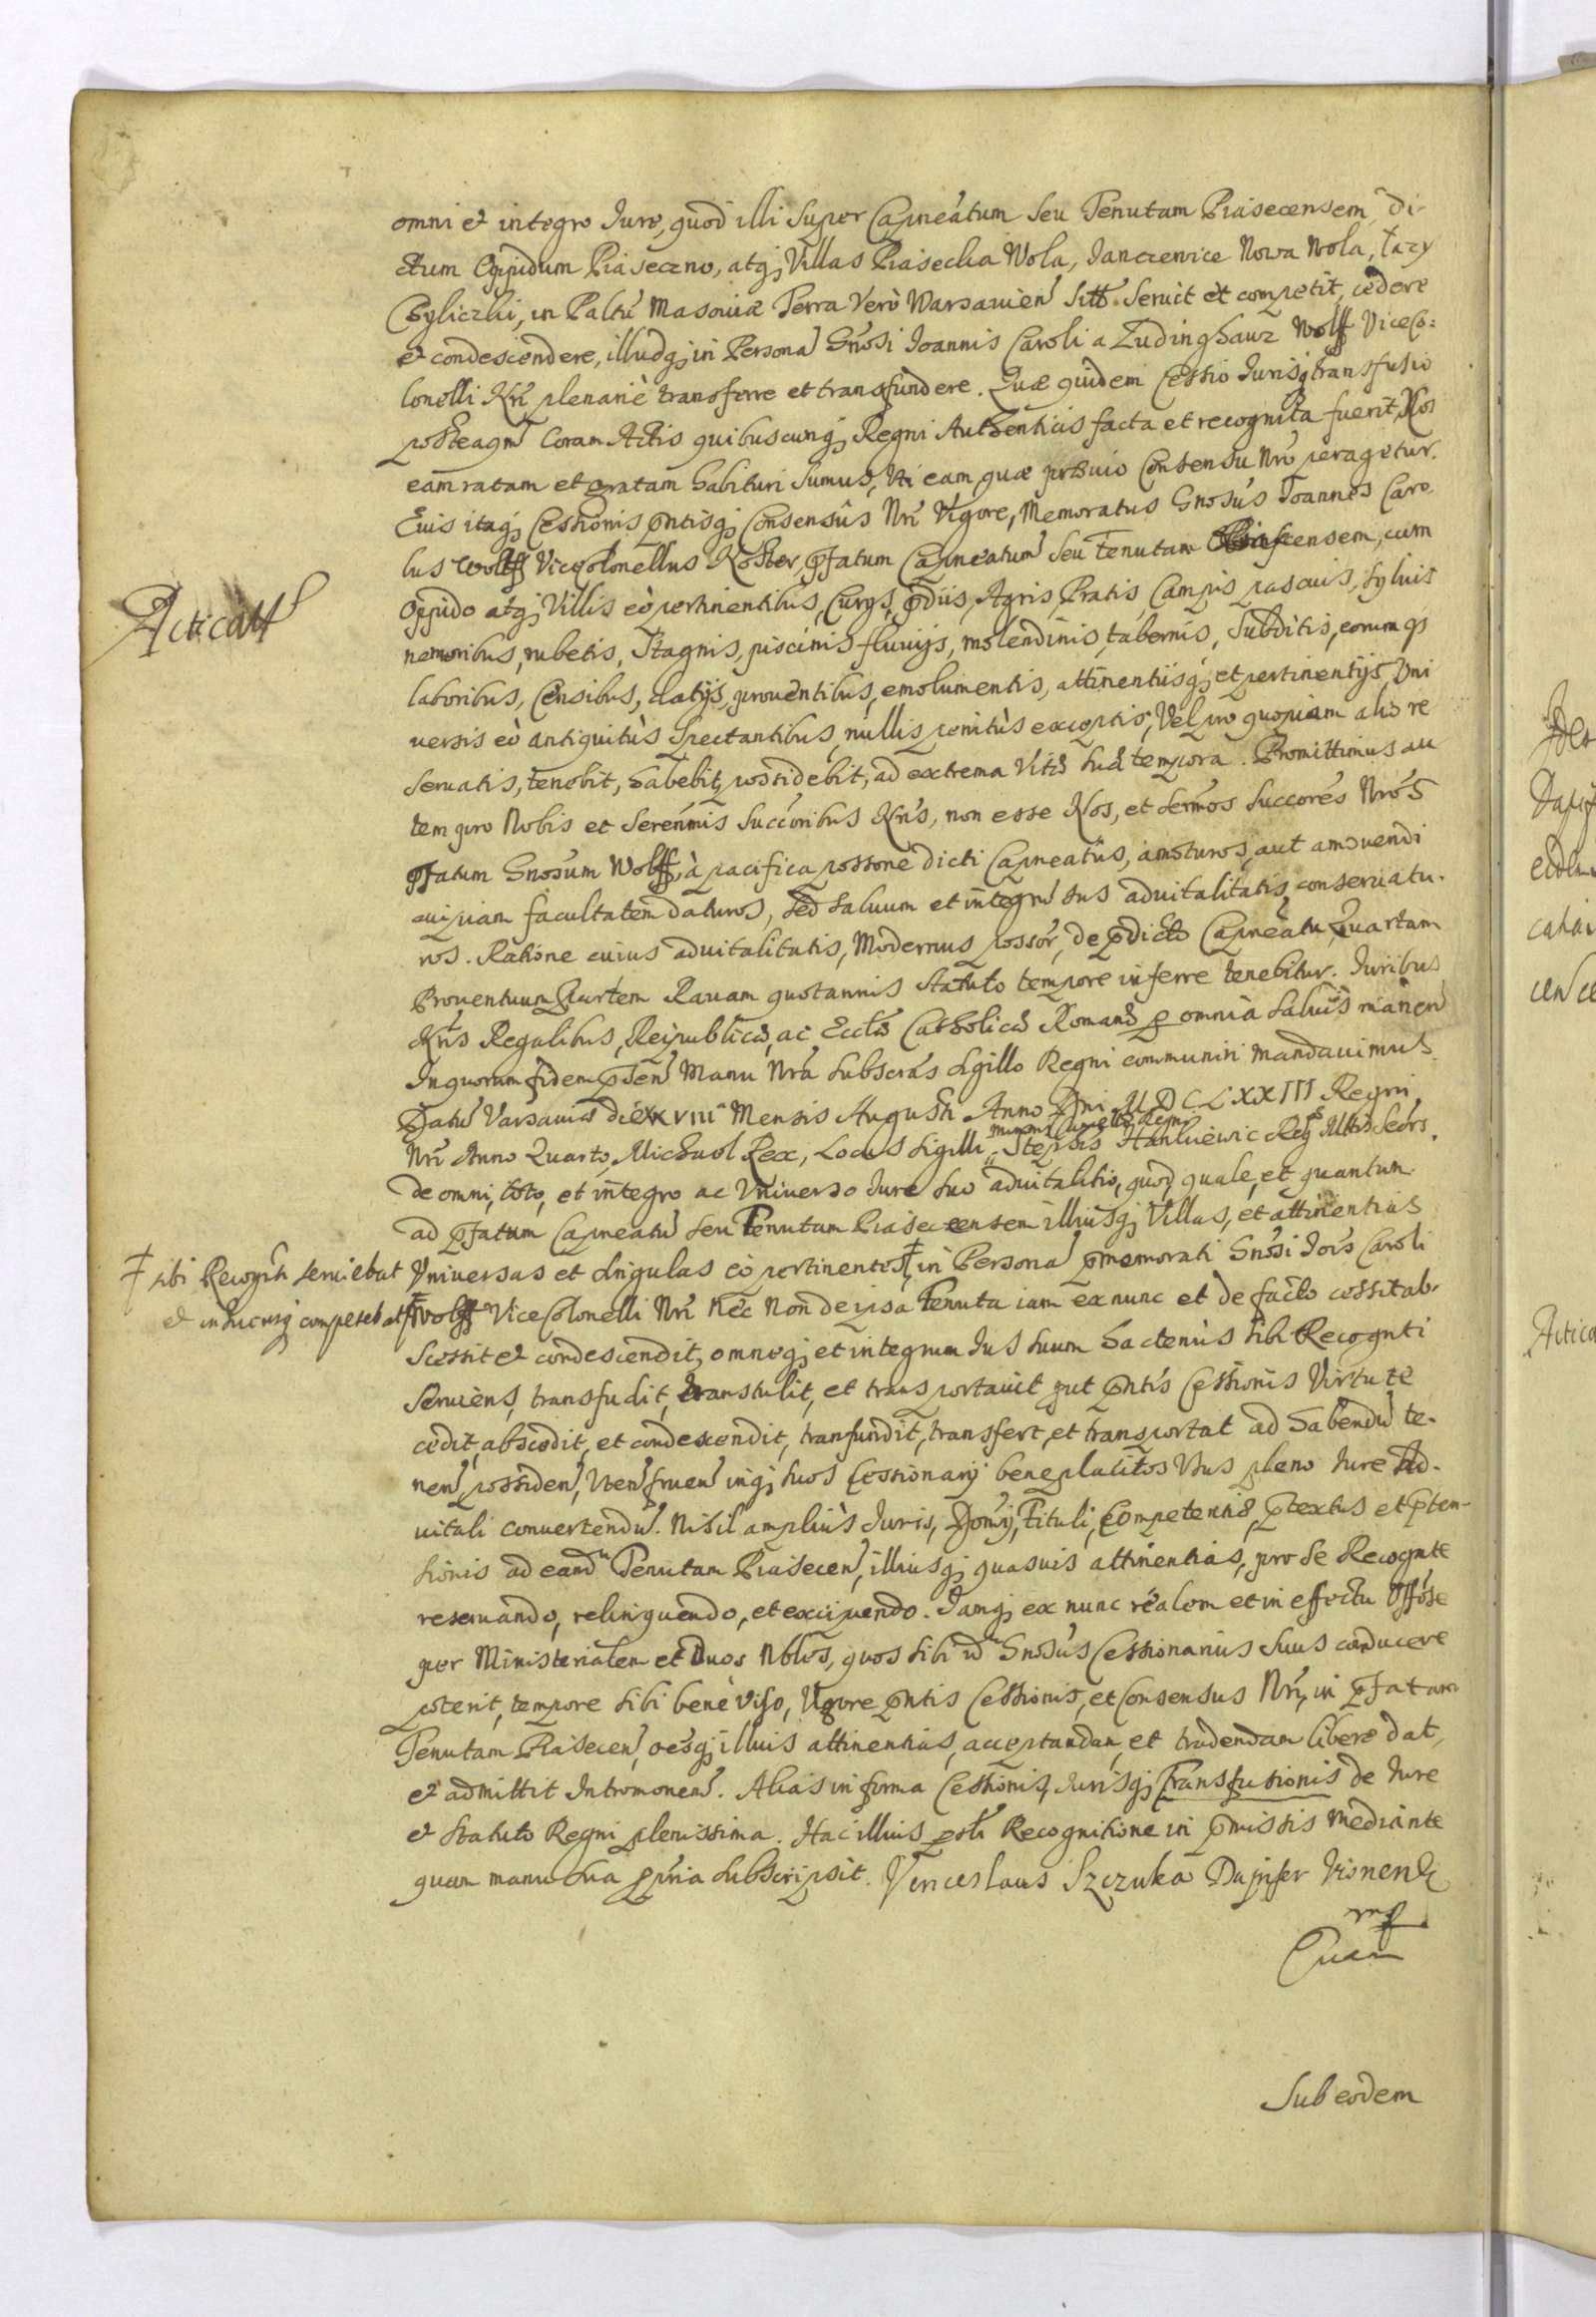 omni et integro Jure, quod illi super Capneatum seu Tenutam Piasecensem, di-
ctum Oppidum Piaseczno, atq; Villas Piasecka Wola, Janczewice Nowa Wola, Łazy
Byliczki, in Paltu Masoviæ Terra Verò Varsavien sitt. servit et competit, cedere
et condescendere, illudq; in Persona Gnosi Joannis Caroli a Ludinghauz Wolff ViceCo:
lonelli Nri plenariè transferre et transfundere. Quæ quidem Cessio Jurisq; transfusio
posteaqm Coram Actis quibuscunq; Regni Authenticis facta et recognita fuerit, Nos
eam ratam et gratam habituri sumus, Uti eam quæ prævio Consensu Nro peragetur.
Cuis itaq; Cessionis pntisq; Consensûs Nri Vigore, Memoratus Gnosus Joannes Caro
lus Wolff ViceColonellus Noster, pfatum Capneatum seu Tenutam Piasecensem, cum
Oppido atq; Villis eò pertinentibus, Curys, pdiis, Agris, Pratis, Campis pascuis, Sylvis
nemoribus, rubetis, Stagnis, piscinis, fluvijs, molendinis, tabernis, Subditis, eorumqs
laboribus, Censibus, datijs, proventibus, emolumentis, attinentiisq; et pertinentijs Uni
versis eò antiquitùs Spectantibus, nullis penitùs exceptis, Vel pro quopiam alio re
servatis, tenebit, habebit, possidebit, ad extrema Vitæ suæ tempora. Promittimus au
tem pro Nobis et Serenmis Succoribus Nris, non esse Nos, et Sermos Succores Nros
pfatum Gnosum Wolff, à pacifica possone dicti Capneatûs, amoturos, aut amovendi
cuipiam facultatem daturos, sed salvum et integru ius advitalitatis, conservatu-
ros. Ratione cuius advitalitatis, Modernus possor, de pdicto Capneatu, Quartam
Proventuum Partem Ravam quotannis Statuto tempore inferre tenebitur. Juribus
Nris Regalibus, Reipublicæ, ac Ecclæ Catholicæ Romanæ p omnia salvis manen
In quorum fidem psen Manu Nra subscras sigillo Regni communiri mandavimus.
Datu Varsaviæ die XXVIII Mensis Augusti Anno Dni MDCLXXIII Regni
Nri Anno Quarto, Michael Rex, Locus Sigilli minoris Cancellæ Regni Stephs Hankiewic Reg Mttis Secrs.
de omni, toto, et integro ac Universo Jure suo advitalitio, quod, quale, et quantum
ad pfatum Capneatu seu Tenutam Piasecensem illiusq; Villas, et attinentias
Universas et singulas eò pertinentes, ‡ in Persona pmemorati Gnosi Jois Caroli
Wolff ViceColonelli Nri Nec Non de ipsa Tenuta iam ex nunc et de facto cessit ab-
scessit et condescendit, omneq; et integrum Jus suum hactenùs sibi Recognti
Serviens, transfudit, transtulit, et transportavit put pntis Cessionis Virtute
cedit, abscedit, et condescendit, transfundit, transfert, et transportat ad habendu te-
nen, possiden, Uten fruen inq; suos Cessionarij beneplacitos Usus pleno Jure Ad-
vitali convertendu. Nihil ampliùs Juris, Domij, Tituli, Competentiæ, ptextus et pten-
sionis ad eand Tenutam Piasecen, illiusq; quasvis attinentias, pro se Recognte
reservando, relinquendo, et excipiendo. Jamq; ex nunc realem et in effectu Offose
per Ministerialem et Duos Nbles, quos sibi id Gnosus Cessionarius suus conducere
poterit, tempore sibi benè viso, Vigore pntis Cessionis, et Consensus Nri, in pfatam
Tenutam Piasecen, oesq; illius attinentias, acceptandam, et tradendam liberè dat,
et admittit Intromonem. Alias in forma Cessionis, Jurisq; Transfusionis de Jure
et Statuto Regni plenissima. Hac illius psti Recognitione in pmissis mediante
quam manu sua ppria subscripsit. Venceslaus Szczuka Dapifer Visnen
mp
Sub eodem
Acticatt
‡ sibi Recognti serviebat
et in hucusq; competebat ‡